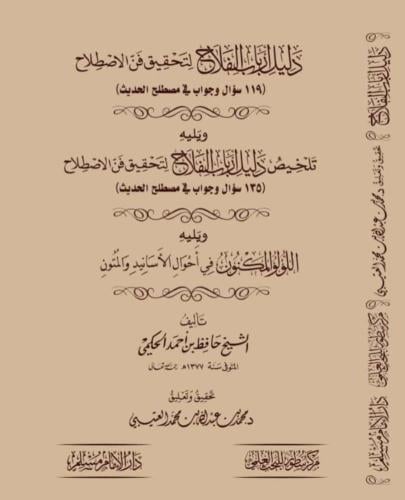 دليل أرباب الفلاح لتحقيق فن الاصطلاح
(١١٩ سؤال وجواب في مصطلح الحديث)
ويليه
تلخيص دليل أرباب الفلاح لتحقيق فن الاصطلاح
(١٣٥ سؤال وجواب في مصطلح الحديث)
ويليه
اللؤلؤ المكنون في أحوال الأسانيد والمتون
تأليف
الشيخ حافظ بن أحمد الحكمي
المتوفى سنة ١٣٧٧هـ رحمه الله تعالى
تحقيق وتعليق
د. محمد بن عبدالله بن محمد العتيبي
مركز سطور للبحث العلمي
دار الإمام مسلم
دليل أرباب الفلاح
تحقيق وتعليق د. محمد بن عبدالله بن محمد العتيبي
مركز سطور للبحث العلمي
دار الإمام مسلم